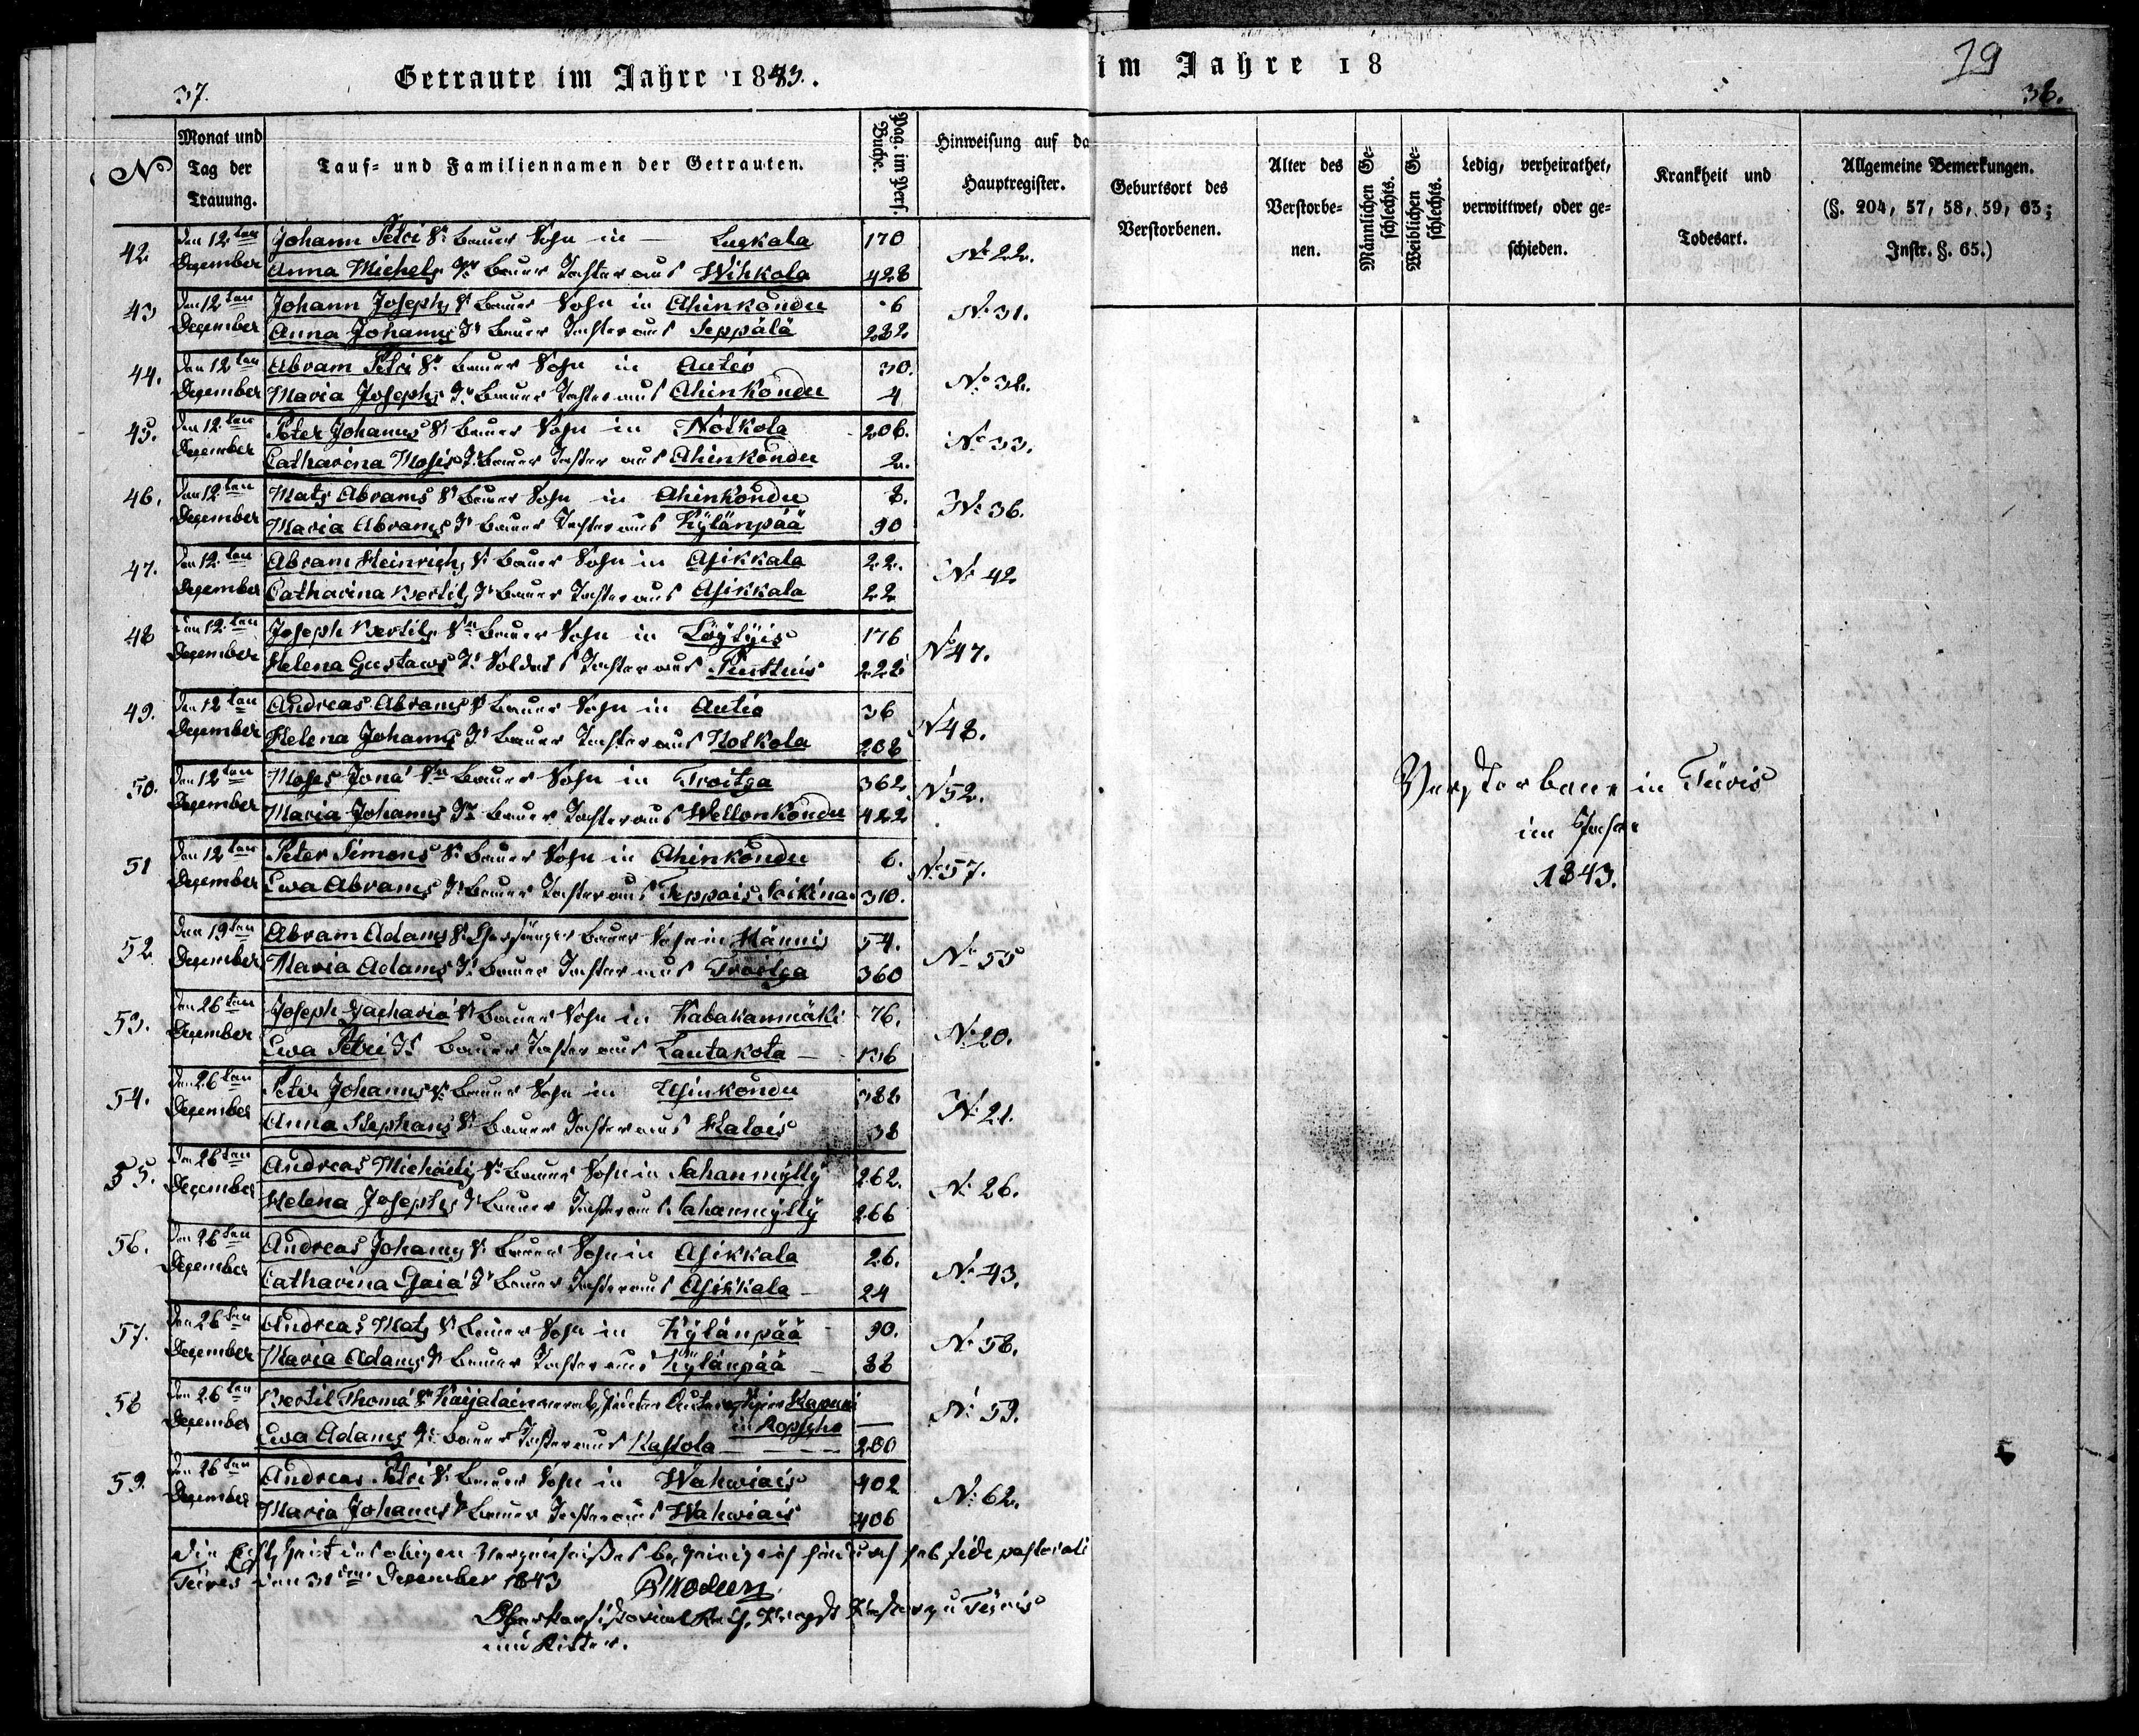 37.
Getraute im Jahre 1843.
№
Monat und
Tag der
Trauung.
Tauf- und Familiennamen der Getrauten.
Pag. im Pers.
Buche.
Hinweisung auf da
Hauptregister.
42 den 12ten Johann Petri S. Bauer Sohn in — Luskala 170 № 22.
December Anna Michels T. Bauer Tochter aus Wihkola 428
43 den 12ten Johann Josephs S. Bauer Sohn in Ahinkondu 6 № 31.
December Anna Johanns T. Bauer Tochter aus Seppälä 232
44. den 12ten Abram Petri S. Bauer Sohn in Autio 30. № 32.
December Maria Josephs T. Bauer Tochter aus Ahinkondu 4
45. den 12ten Peter Johanns S. Bauer Sohn in Notkola 206. № 33.
December Catharina Mosis T. Bauer Tochter aus Ahinkondu 2.
46. den 12ten Mats Abrams S. Bauer Sohn in Ahinkondu 8. № 36.
December Maria Abrams T. Bauer Tochter aus Kylänpää 90
47. den 12ten Abram Heinrichs S. Bauer Sohn in Asikkala 22. № 42
December Catharina Bertils T. Bauer Tochter aus Asikkala 22
48 den 12ten Joseph Bertils Sn Bauer Sohn in Löytyis 176 № 47.
December Helena Gustaws T. Soldat's Tochter aus 222
49. den 12ten Andreas Abrams S. Bauer Sohn in Autio 36 № 48.
December Helena Johanns T. Bauer Tochter aus Notkola 208
50. den 12ten Moses Jona Sn Bauer Sohn in Troitza 362. № 52.
December Maria Johanns T. Bauer Tochter aus Wellonkondu 422
51 den 12ten Peter Simons S. Bauer Sohn in Ahinkondu 6. № 57.
December Ewa Abrams T. Bauer Tochter aus Teppois Saikina 310.
52 den 19ten Abram Adams S. Bauer Sohn in Männis 54. № 55
December Maria Adams T. Bauer Tochter aus Troitza 360
53. den 26ten Joseph Zachariä S. Bauer Sohn in Kabakanmäki 76. № 20.
December Ewa Petri T. Bauer Tochter aus Lautakota — 136
54. den 26ten Peter Johanns S. Bauer Sohn in Uhinkondu 382 № 21.
December Anna Stephans T. Bauer Tochter aus Halois 38
55. den 26ten Andreas Michaels S. Bauer Sohn in Sahanmylly 262. № 26.
December Helena Josephs T. Bauer Tochter aus Sahanmylly 266
56. den 26ten Andreas Johanns S. Bauer Sohn in Asikkala 26. № 43.
December Catharina Gaia T. Bauer Tochter aus Asikkala — 24
57. den 26ten Andreas Mats S. Bauer Sohn in Kylänpää 90. № 58.
December Maria Adams T. Bauer Tochter aus Kylänpää — 88
58 den 26ten Bertil Thomä Sn Kaijalain — № 59.
in Ropscha
December Ewa Adams T. Bauer Tochter aus Kassola — 200
59. den 26ten Andreas Petri S. Bauer Sohn in Wahwiais 402 № 62.
December Maria Johanns T. Bauer Tochter aus Wahwiais 406
Die Echtheit des obigen Verzeichnisses bescheinige ich hierdurch sub fide pastorali
Türis den 31ten December 1843
Pastor zu Türis
und Ritter.
im Jahre 18
19
38.
Geburtsort des
Verstorbenen.
Alter des
Verstorbe-
nen.
Männlichen Ge-
schlechts.
Weiblichen Ge-
schlechts.
Ledig, verheirathet,
verwittwet, oder ge-
schieden.
Krankheit und
Todesart.
Allgemeine Bemerkungen.
(§. 204, 57, 58, 59, 63;
Instr. §. 65.)
Verstorbene in Türis
im Jahre
1843.